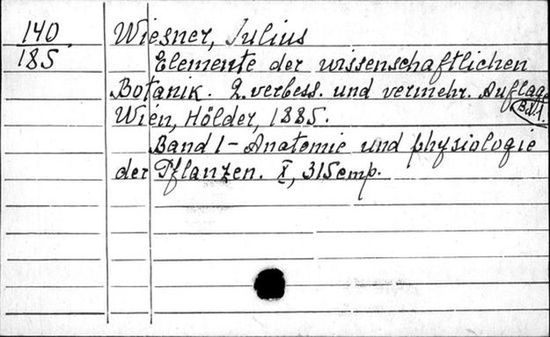 140
185
Wiesner, Julius
Elemente der wissenschaftlichen
Botanik. 2. verbess. und vermehr. Auflage
Bd 1.
Wien, Hölder, 1885.
Band 1 - Anatomie und physiologie
der Pflanzen. X, 315 cmp.